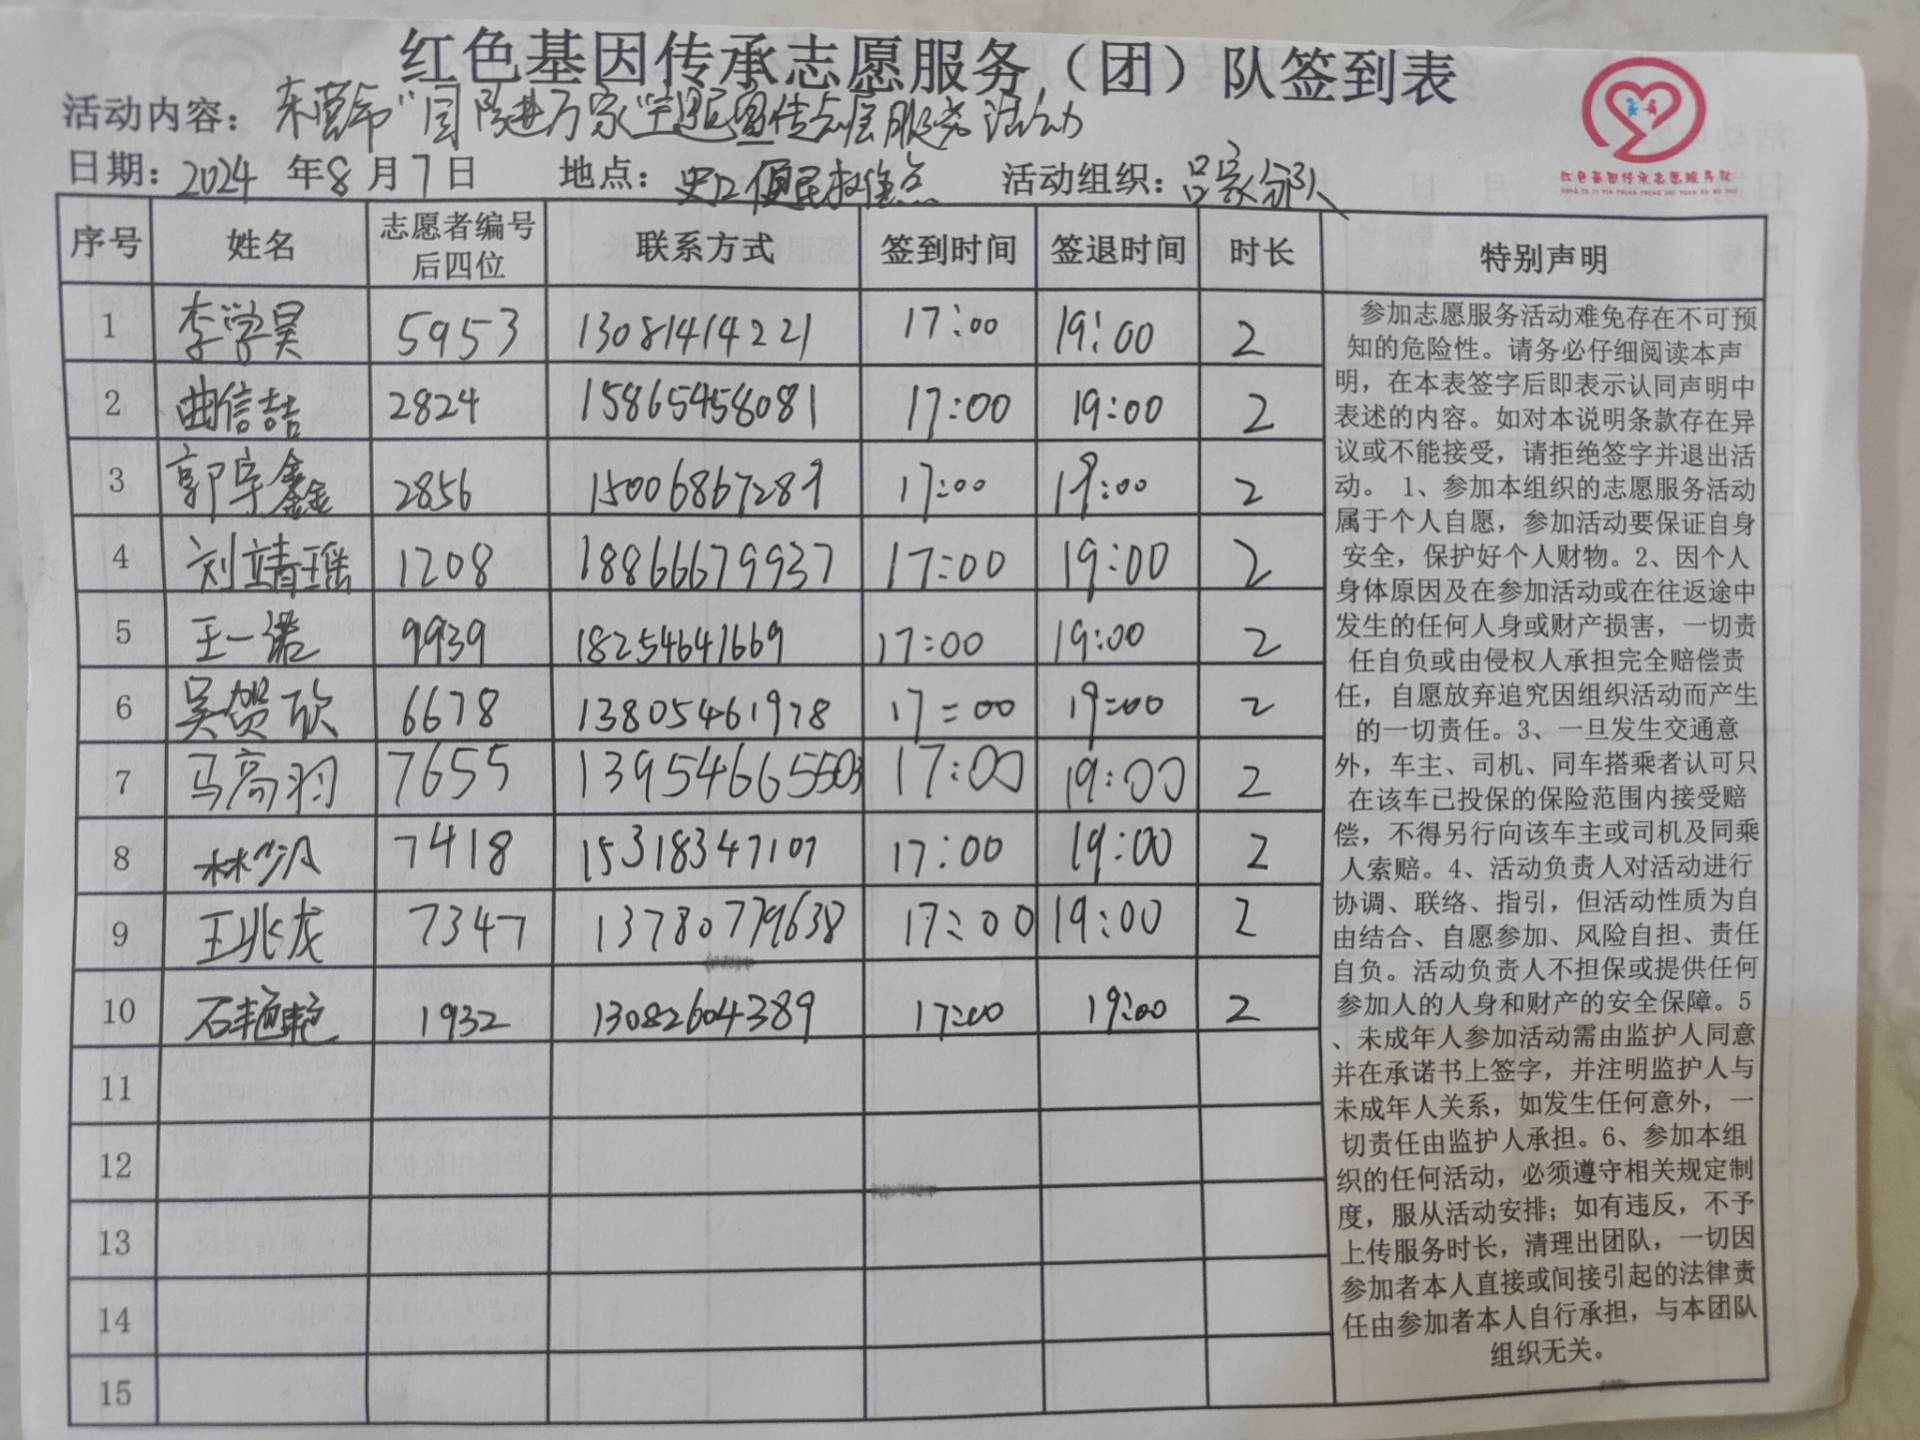 红色基因传承志愿服务（团）队签到表
活动内容：东营市"国防进万家"主题宣传志愿服务活动
日期：2024 年8 月7日 地点：史口便民救生点 活动组织：吕家分队
红色基因传承志愿服务队
序号 姓名 志愿者编号后四位 联系方式 签到时间 签退时间 时长 特别声明
1 李学昊 5953 13081414221 17:00 19:00 2
2 曲信喆 2824 15865458081 17:00 19:00 2
3 郭宇鑫 2856 15006867289 17:00 19:00 2
4 刘靖瑶 1208 18866679937 17:00 19:00 2
5 王一诺 9939 18254641669 17:00 19:00 2
6 吴贺欣 6678 13805461978 17:00 19:00 2
7 马高羽 7655 13954665503 17:00 19:00 2
8 林 7418 15318347107 17:00 19:00 2
9 王兆龙 7347 13780779638 17:00 19:00 2
10 石艳艳 1932 13082604389 17:00 19:00 2
11
12
13
14
15
参加志愿服务活动难免存在不可预
知的危险性。请务必仔细阅读本声
明，在本表签字后即表示认同声明中
表述的内容。如对本说明条款存在异
议或不能接受，请拒绝签字并退出活
动。 1、参加本组织的志愿服务活动
属于个人自愿，参加活动要保证自身
安全，保护好个人财物。2、因个人
身体原因及在参加活动或在往返途中
发生的任何人身或财产损害，一切责
任自负或由侵权人承担完全赔偿责
任，自愿放弃追究因组织活动而产生
的一切责任。3、一旦发生交通意
外，车主、司机、同车搭乘者认可只
在该车已投保的保险范围内接受赔
偿，不得另行向该车主或司机及同乘
人索赔。4、活动负责人对活动进行
协调、联络、指引，但活动性质为自
由结合、自愿参加、风险自担、责任
自负。活动负责人不担保或提供任何
参加人的人身和财产的安全保障。5
、未成年人参加活动需由监护人同意
并在承诺书上签字，并注明监护人与
未成年人关系，如发生任何意外，一
切责任由监护人承担。6、参加本组
织的任何活动，必须遵守相关规定制
度，服从活动安排；如有违反，不予
上传服务时长，清理出团队，一切因
参加者本人直接或间接引起的法律责
任由参加者本人自行承担，与本团队
组织无关。